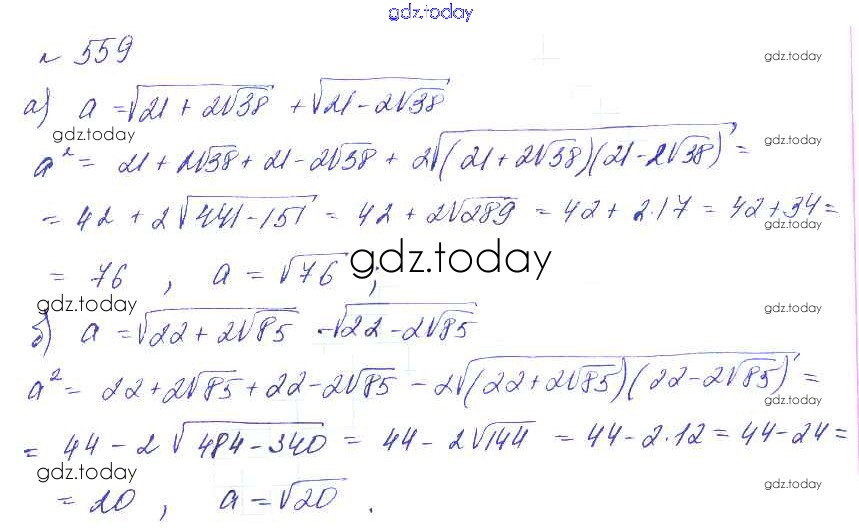 gdz.today
№ 559
gdz.today
а) a = √(21 + 2√38) + √(21 - 2√38)
gdz.today
gdz.today
a² = 21 + 2√38 + 21 - 2√38 + 2√((21 + 2√38)(21 - 2√38)) =
= 42 + 2√(441 - 151) = 42 + 2√289 = 42 + 2·17 = 42 + 34 =
gdz.today
= 76 , a = √76 ;
gdz.today
gdz.today
gdz.today
б) a = √(22 + 2√85) - √(22 - 2√85)
a² = 22 + 2√85 + 22 - 2√85 - 2√((22 + 2√85)(22 - 2√85)) =
gdz.today
= 44 - 2√(484 - 340) = 44 - 2√144 = 44 - 2·12 = 44 - 24 =
gdz.today
gdz.today
= 20 , a = √20 .